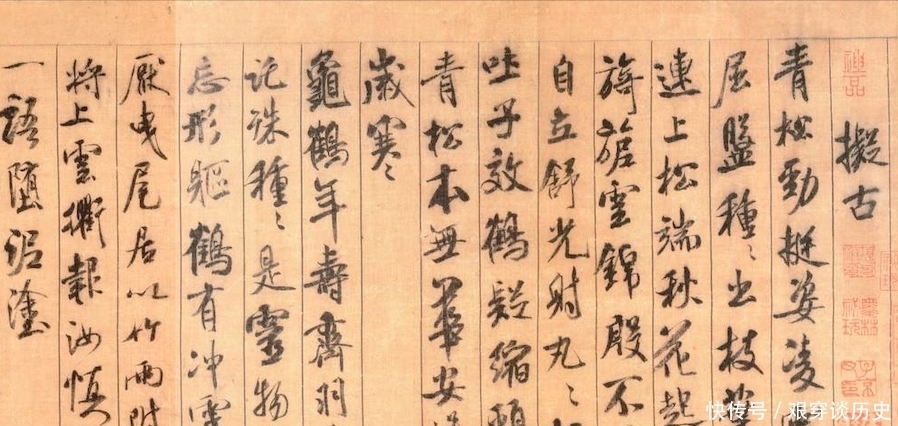 擬古
青松勁挺姿凌
屈盤種〻出枝
連上松端秋花起
旖旎雲錦殷不
自立舒光射丸〻
吐子效鶴疑縮頸
青松本無華安
歲寒〻
龜鶴年壽齊羽
託殊種〻是靈物
忘形軀鶴有冲霄
厭曳尾居以竹兩附
將上雲衢報汝慎
一語墮泥塗
快传号 / 艰穿谈历史